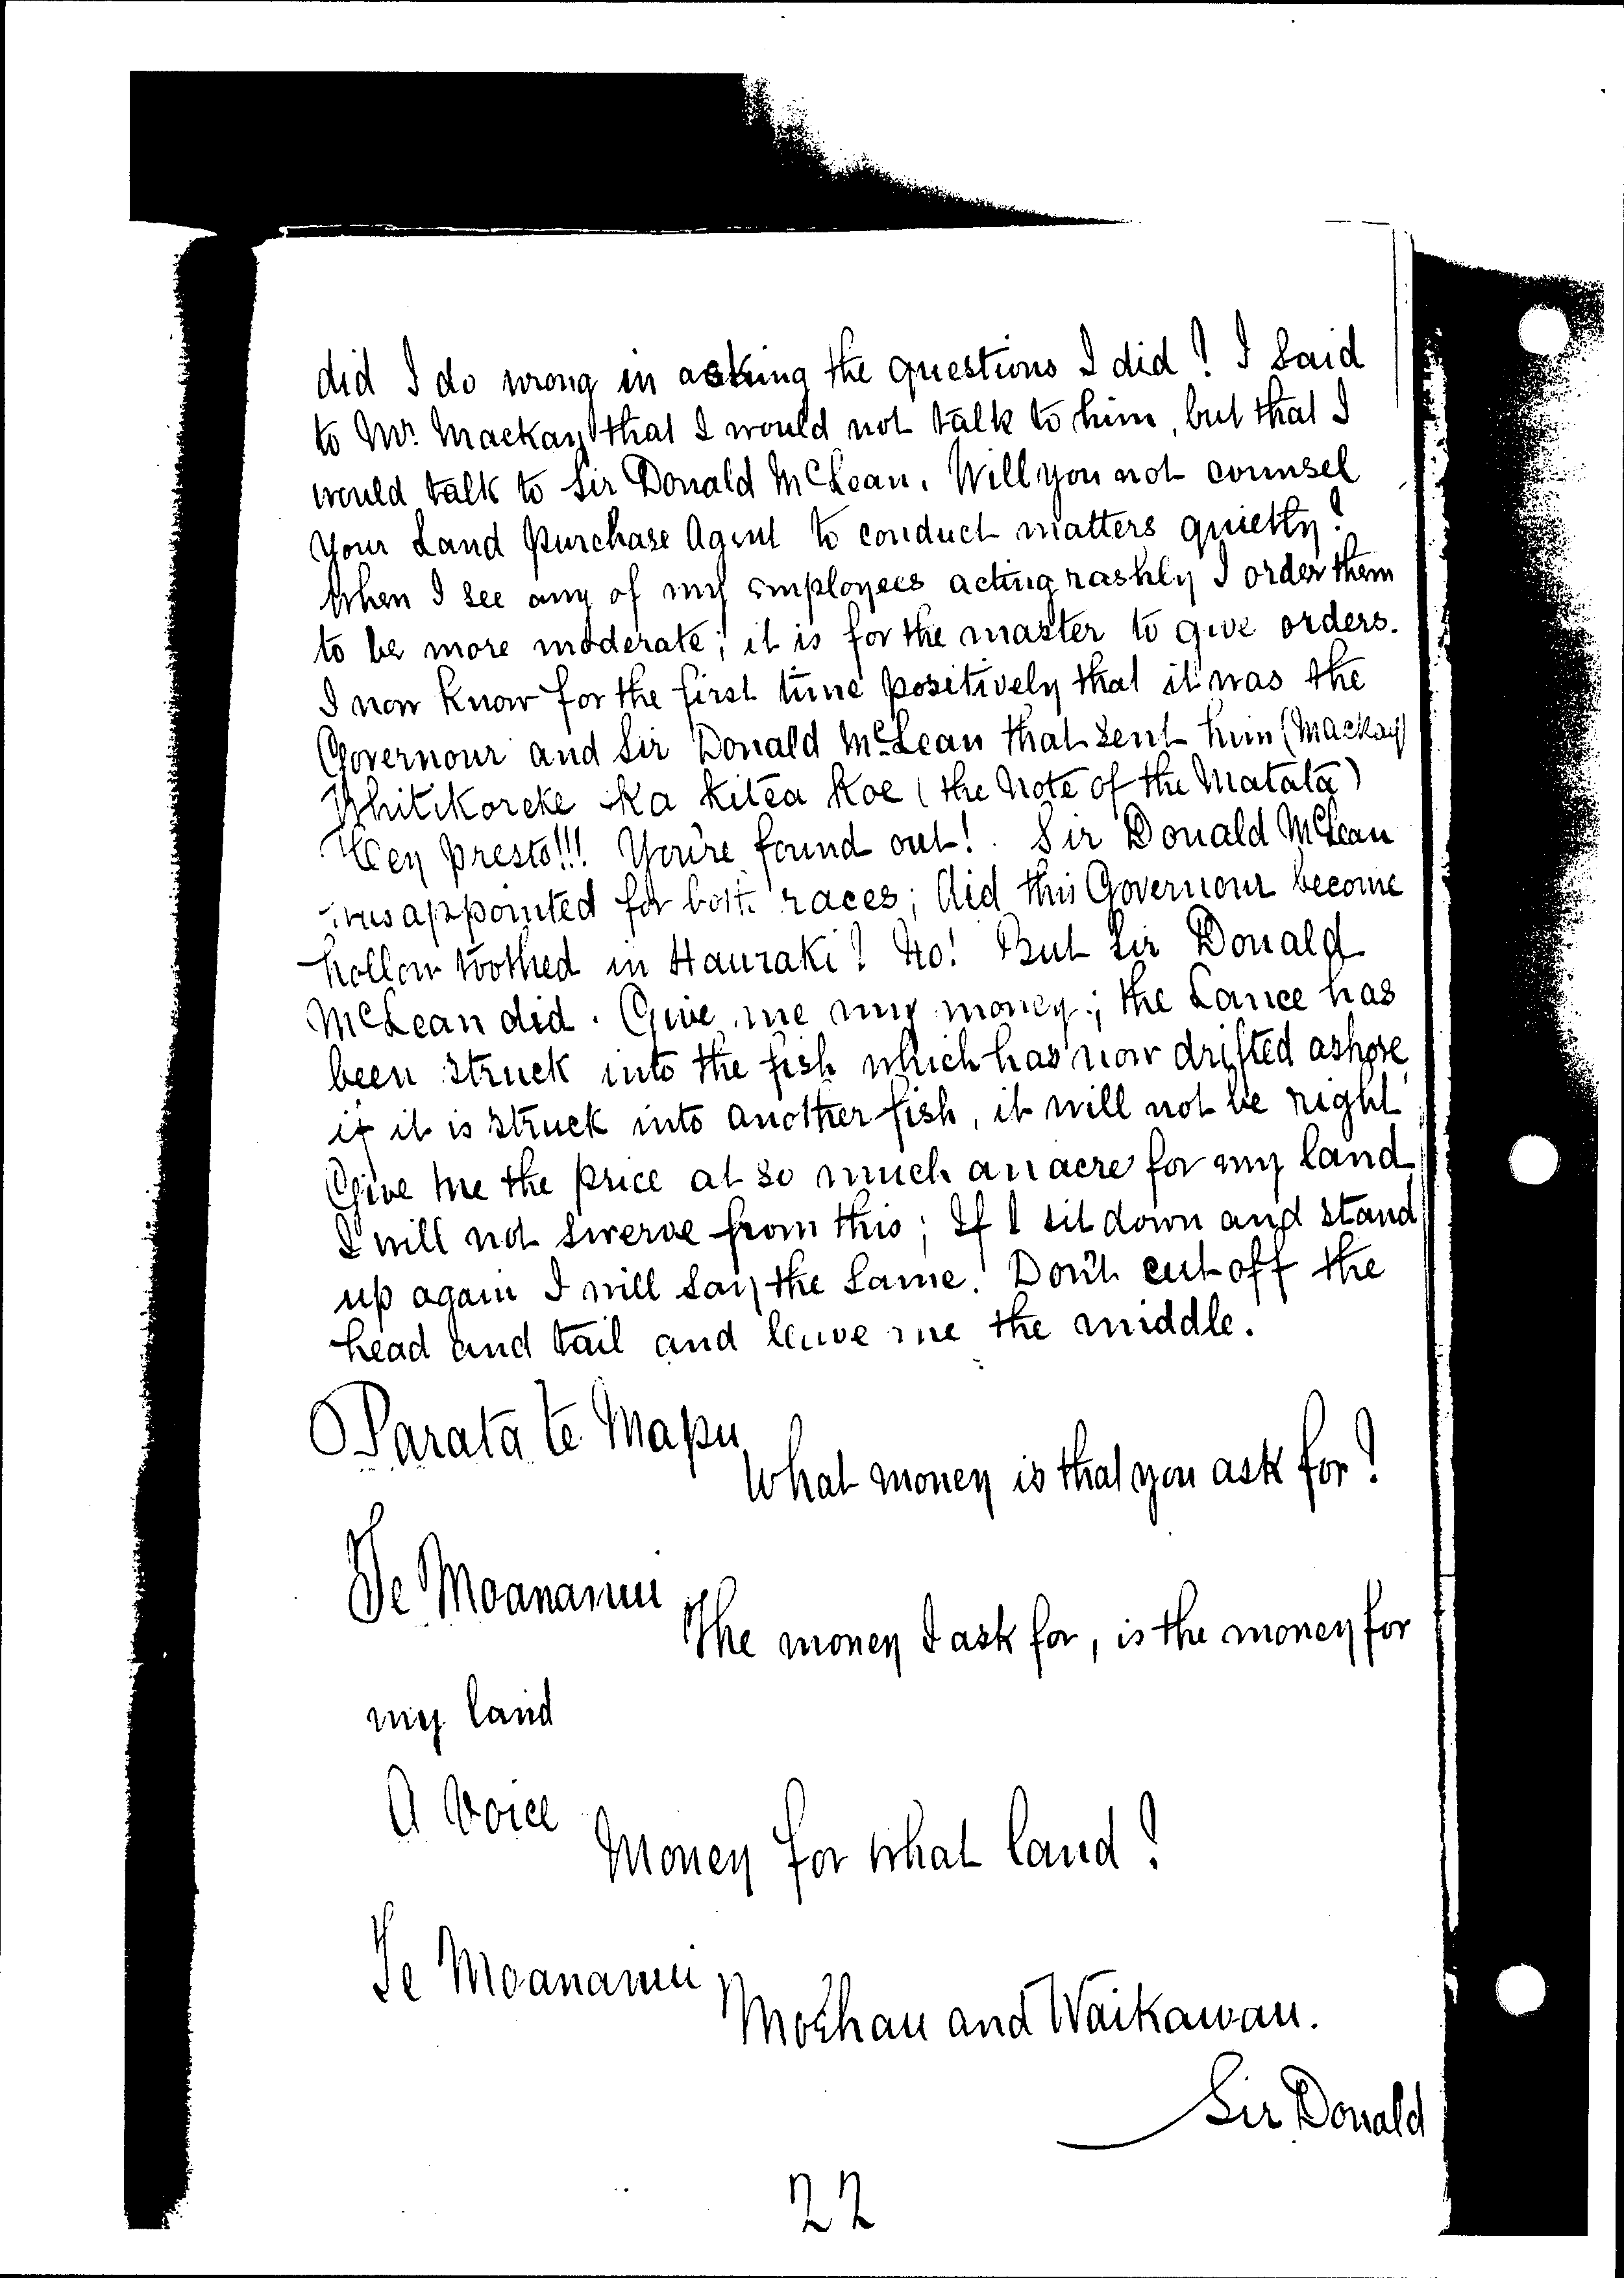 did I do wrong in asking the questions I did? I said
to Mr. Mackay that I would not talk to him, but that I
would talk to Sir Donald McLean. Will you not counsel
your Land Purchase Agent to conduct matters quietly?
When I see any of my employees acting rashly I order them
to be more moderate; it is for the master to give orders.
I now know for the first time positively that it was the
Governour and Sir Donald McLean that sent him (Mackay)
Whitikoreke ka kitea koe (the note of the Matata)
Hey presto!!! You're found out! Sir Donald McLean
was appointed for both races; did this Governour become
hollow toothed in Hauraki? No! But Sir Donald
McLean did. Give me my money; the Lance has
been struck into the fish which has now drifted ashore,
if it is struck into another fish, it will not be right
Give me the price at so much an acre for my land
I will not swerve from this; If I sit down and stand
up again I will say the same. Don't cut off the
head and tail and leave me the middle.
Parata te Mapu
What money is that you ask for?
Te Moananui
The money I ask for, is the money for
my land
A Voice
Money for what land?
Te Moananui
Moehau and Waikawau.
Sir Donald
22